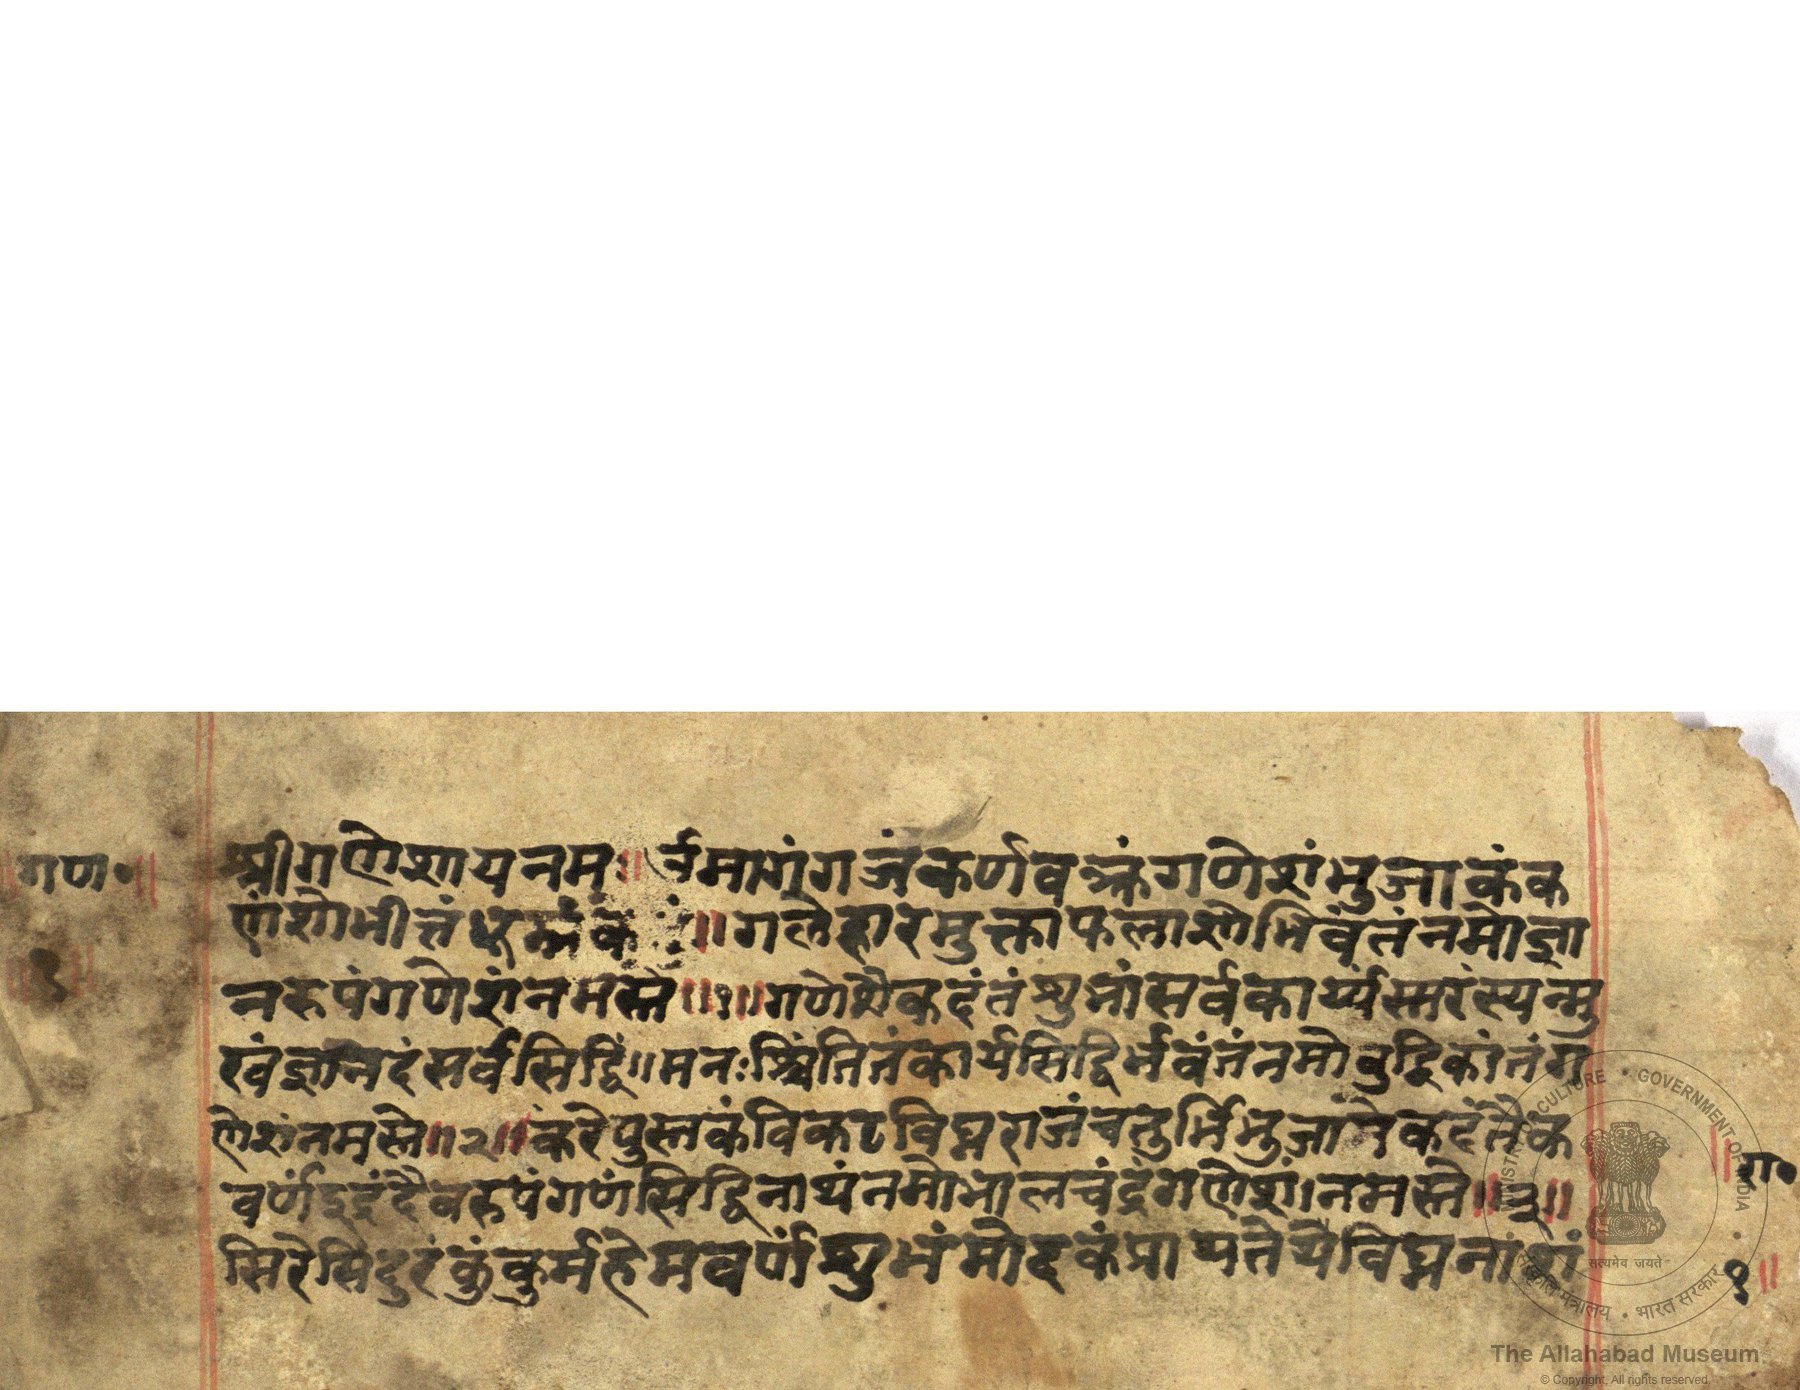 श्रीगणेशायनमः॥ उमागंगजंकर्णवक्त्रंगणेशंभुजाकंक
णंशोभीतं ॥गलेहारमुक्ताफलाशोभिवंतंनमोज्ञा
नरुपंगणेशंनमस्ते॥१॥गणेशैकदंतंशुभांसर्वकार्य्यंस्मरंस्यन्मु
खंज्ञानदंसर्वसिद्धिं॥मनःश्चिंतितंकार्यसिद्धिर्भवंतंनमोबुद्धिकांतंग
णेशंनमस्ते॥२॥करेपुस्तकंविकटविघ्नराजंचतुर्भिभुजा
वर्णं गणंसिद्धिनाथंनमोभालचंद्रंगणेशं।नमस्ते॥३॥
सिरेसिंदुरंकुंकुर्महेमवर्णंशुभंमोदकंप्रा विघ्ननाशं
गण॰॥
१
॥रा॰
१॥
MINISTRY OF CULTURE • GOVERNMENT OF INDIA
सत्यमेव जयते
संस्कृति मंत्रालय • भारत सरकार
The Allahabad Museum
© Copyright, All rights reserved.